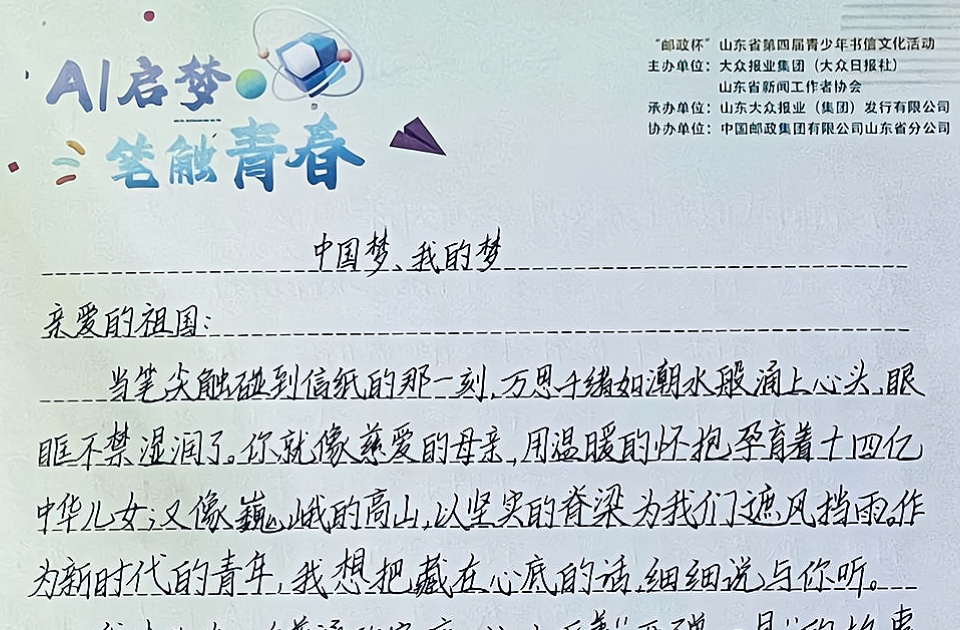 AI启梦
笔触青春
“邮政杯”山东省第四届青少年书信文化活动
主办单位：大众报业集团（大众日报社）
山东省新闻工作者协会
承办单位：山东大众报业（集团）发行有限公司
协办单位：中国邮政集团有限公司山东省分公司
中国梦、我的梦
亲爱的祖国：
当笔尖触碰到信纸的那一刻,万思千绪如潮水般涌上心头,眼
眶不禁湿润了。你就像慈爱的母亲,用温暖的怀抱孕育着十四亿
中华儿女;又像巍峨的高山,以坚实的脊梁为我们遮风挡雨。作
为新时代的青年,我想把藏在心底的话,细细说与你听。